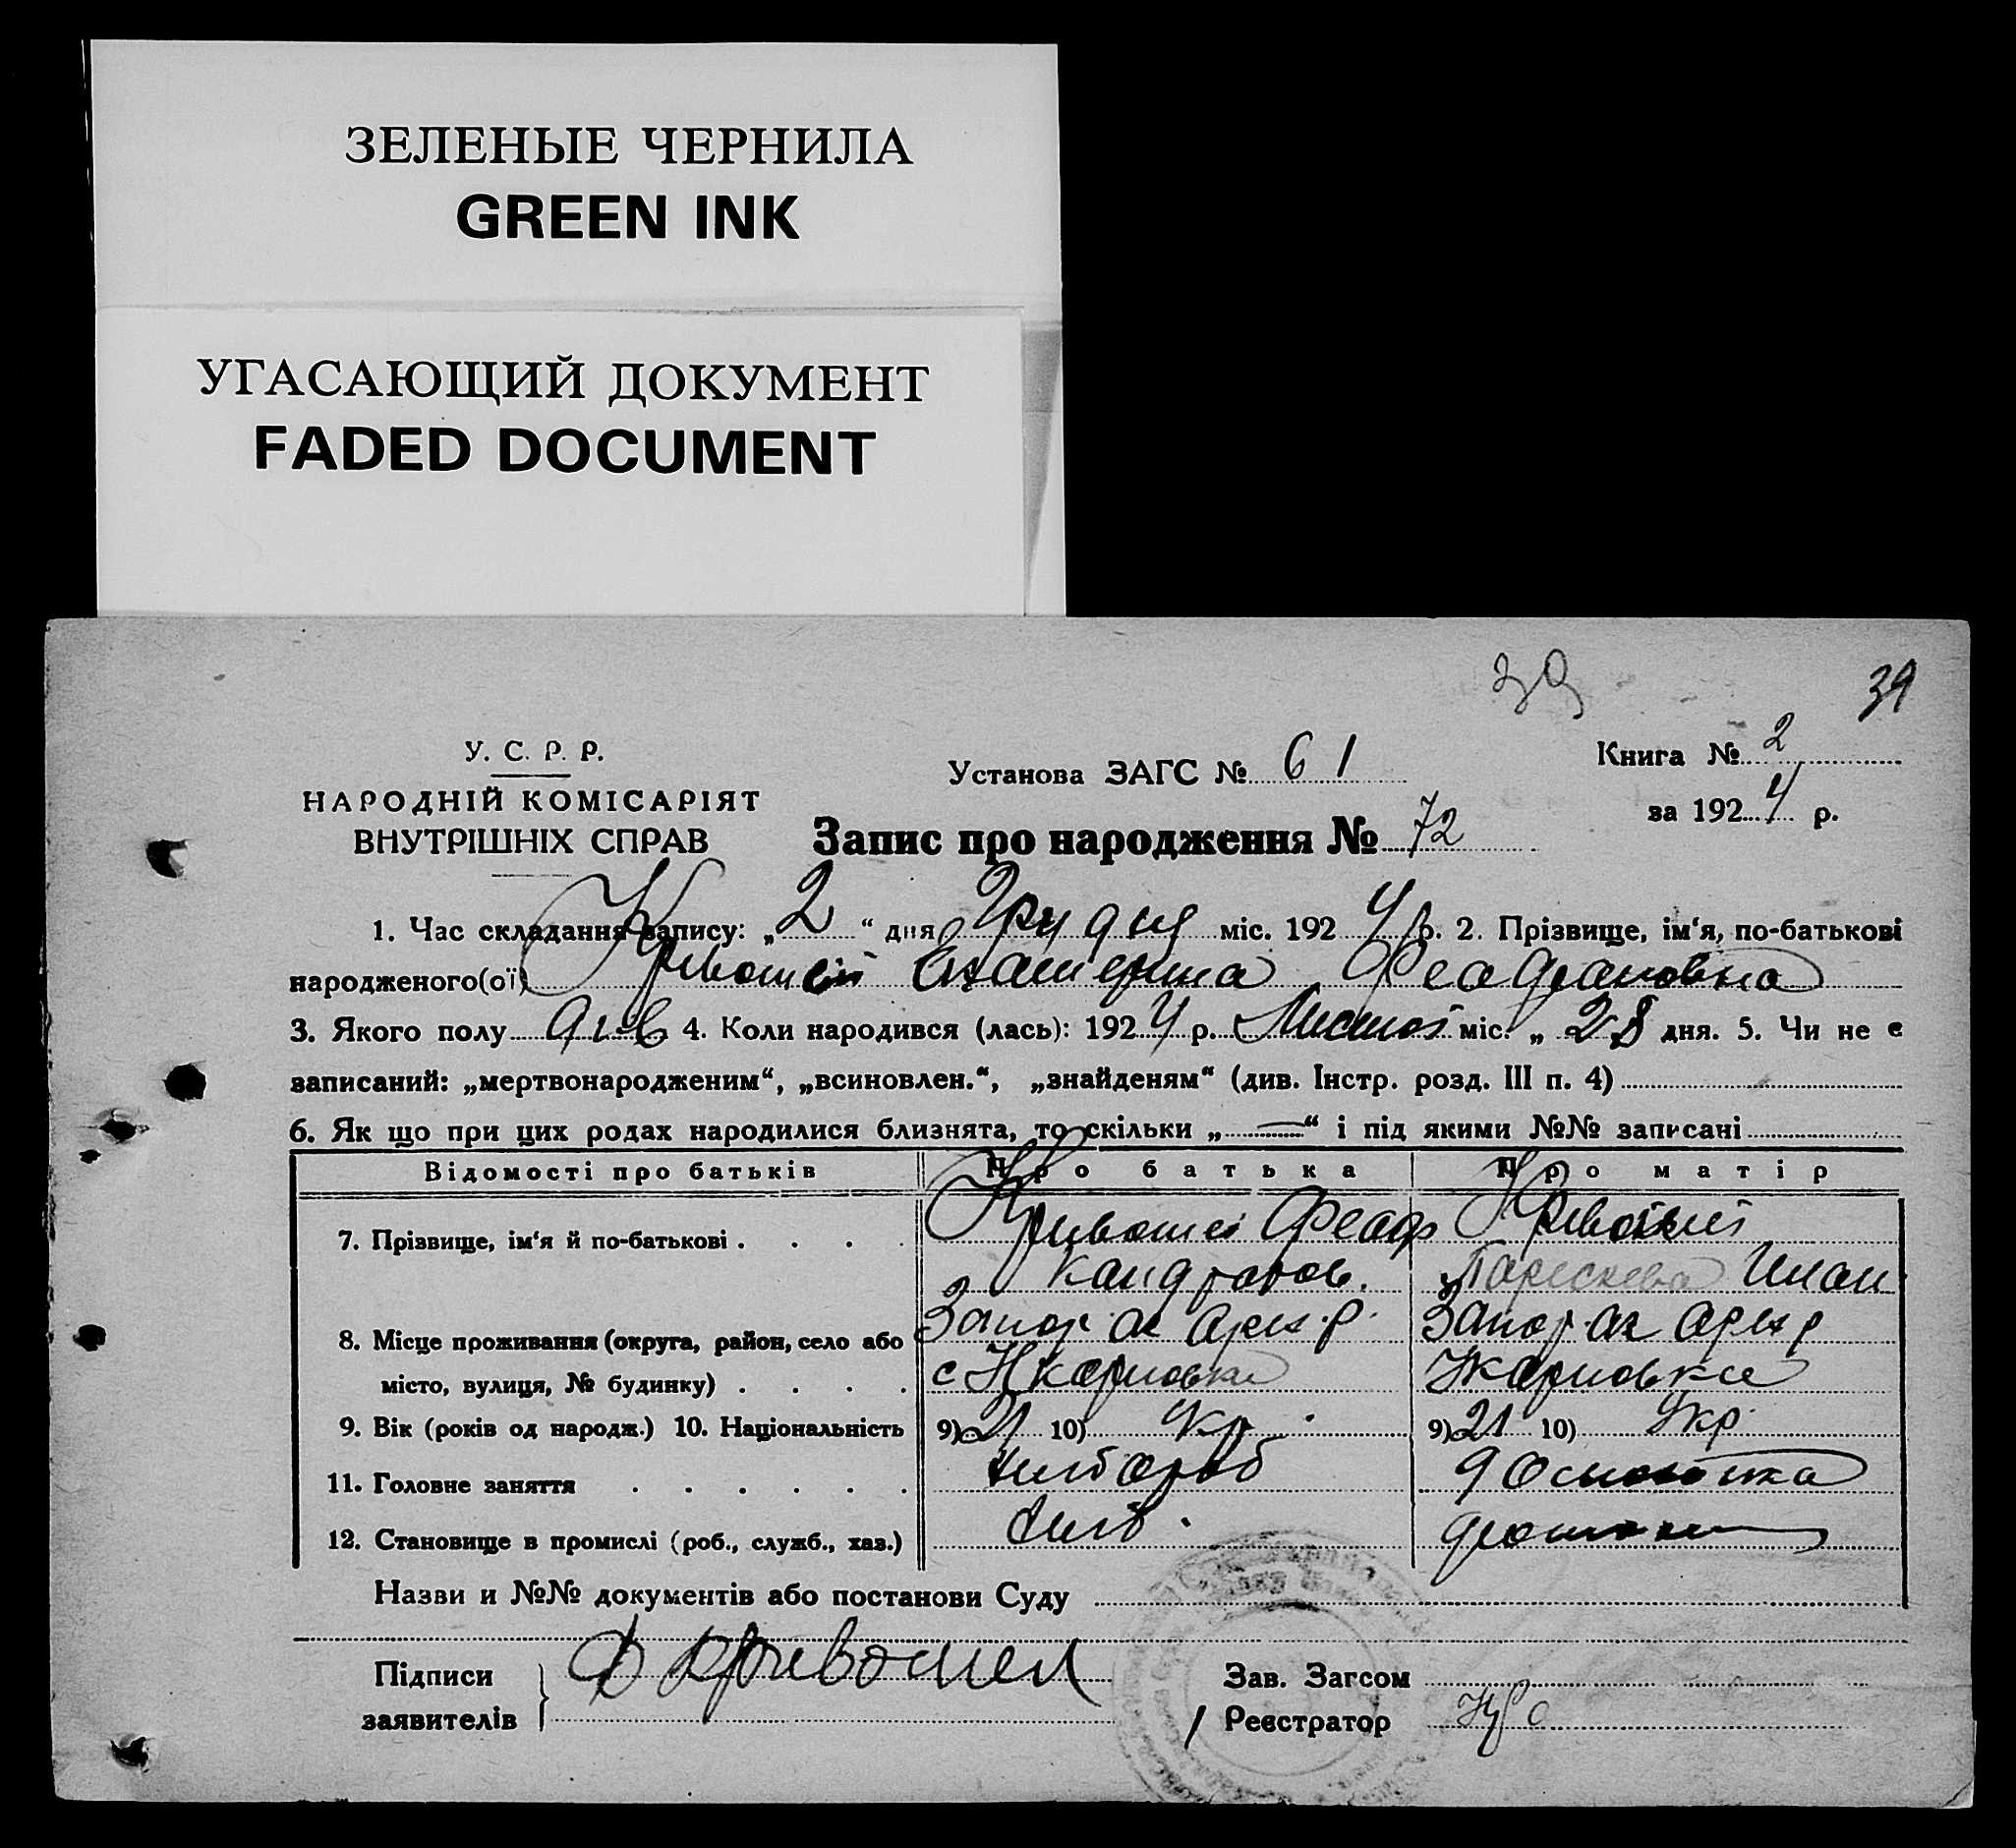 ЗЕЛЕНЫЕ ЧЕРНИЛА
GREEN INK
УГАСАЮЩИЙ ДОКУМЕНТ
FADED DOCUMENT
39 39
У. С. Р. Р.
НАРОДНІЙ КОМІСАРІЯТ
ВНУТРІШНІХ СПРАВ
Установа ЗАГС № 61
Книга № 2
за 1924 р.
Запис про народження № 72
1. Час складання запису: „2“ дня Грудня міс. 1924 р. 2. Прізвище, ім‘я, по-батькові
народженого(ої) Кривошей Екатерина Феодрановна
3. Якого полу дів 4. Коли народився (лась): 1924 р. міс. „28 дня. 5. Чи не є
записаний: „мертвонародженим“, „всиновлен.“, „знайденям“ (див. Інстр. розд. III п. 4)
6. Як що при цих родах народилися близнята, то скільки „—“ і під якими №№ записані
Відомості про батьків Про батька Про матір
7. Прізвище, ім‘я й по-батькові . . . . Кривошей Феодр Кривошей
Кандратов. Параскева Иван
8. Місце проживання (округа, район, село або Запор. ок Орех. р. Запор. ок Орех р
місто, вулиця, № будинку) . . . . с Н карловка Нкарловка
9. Вік (років од народж.) 10. Національність 9) 21 10) Укр. 9) 21 10) Укр.
11. Головне заняття . . . . . . хлібороб
12. Становище в промислі (роб., служб., хаз.) хліб.
Назви и №№ документів або постанови Суду
Підписи Ф Кривошей Зав. Загсом
заявителів Реєстратор